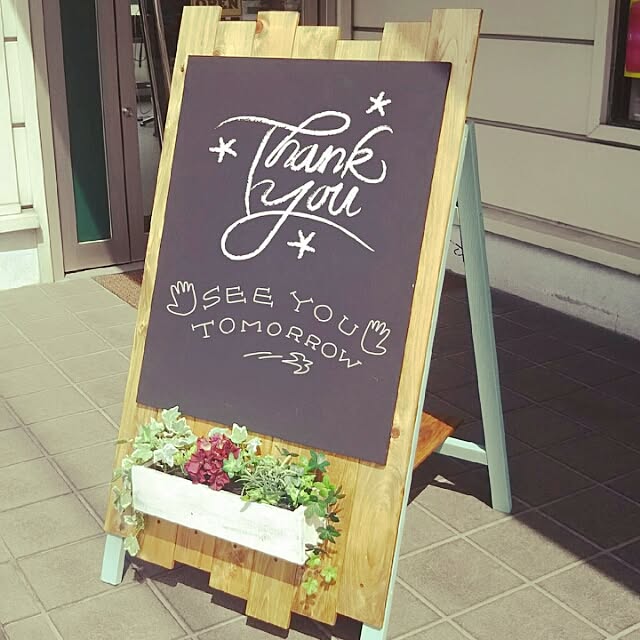 Thank
You
SEE YOU
TOMORROW